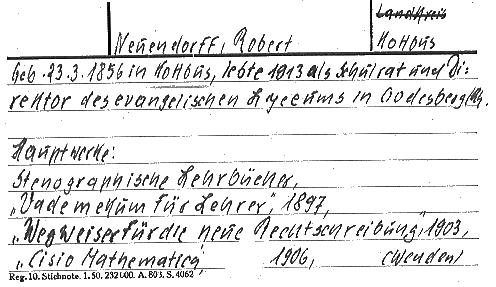 Landkreis
Neuendorff, Robert
Kottbus
Geb. 23.3.1856 in Kottbus, lebte 1913 als Schulrat und Di-
rektor des evangelischen Lyceums in Godesberg
Hauptwerke:
Stenographische Lehrbücher,
„Vademekum für Lehrer", 1897,
„Wegweiser für die neue Rechtschreibung", 1903,
„Cisio Mathematica", 1906, (Wenden)
Reg. 10. Stichnote. 1. 50. 232000. A. 803. S. 4062